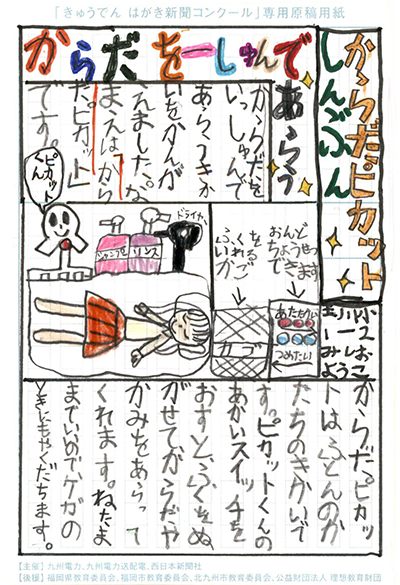 「きゅうでん はがき新聞コンクール」専用原稿用紙
からだピカット
しんぶん
からだを一しゅんで
あらう
からだを
いっしゅんで
あらうきか
いをかんが
えました。な
まえは「から
だピカット」
です。
ピカット
くん
シャンプー
リンス
ドライヤー
カゴ
あたたかい
つめたい
からだピカッ
トはふとんのか
たちのきかいで
す。ピカットくんの
あかいスイッチを
おすとふくをぬ
がせてからだや
かみをあらって
くれます。ねたま
までいいのでケガの
ときにもやくだちます。
【主催】九州電力、九州電力送配電、西日本新聞社
【後援】福岡県教育委員会、福岡市教育委員会、北九州市教育委員会、公益財団法人 理想教育財団